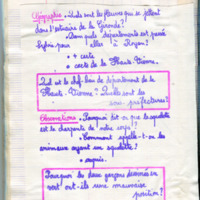 Géographie : • Quels sont les fleuves qui se jettent
dans l'estuaire de la Gironde ?
• Dans quels départements est passé
pour aller à Royan ?
+ carte
+ carte de la Haute Vienne.
Quel est le chef-lieu de département de la
Haute Vienne ? Quelles sont les
sous-préfectures ?
Observations : Pourquoi dit on que le squelette
est la charpente de notre corps ?
• Comment appelle-t-on les
animaux ayant un squelette ?
+ croquis.
Pourquoi les deux garçons dessinés en
vert ont-ils une mauvaise
position ?